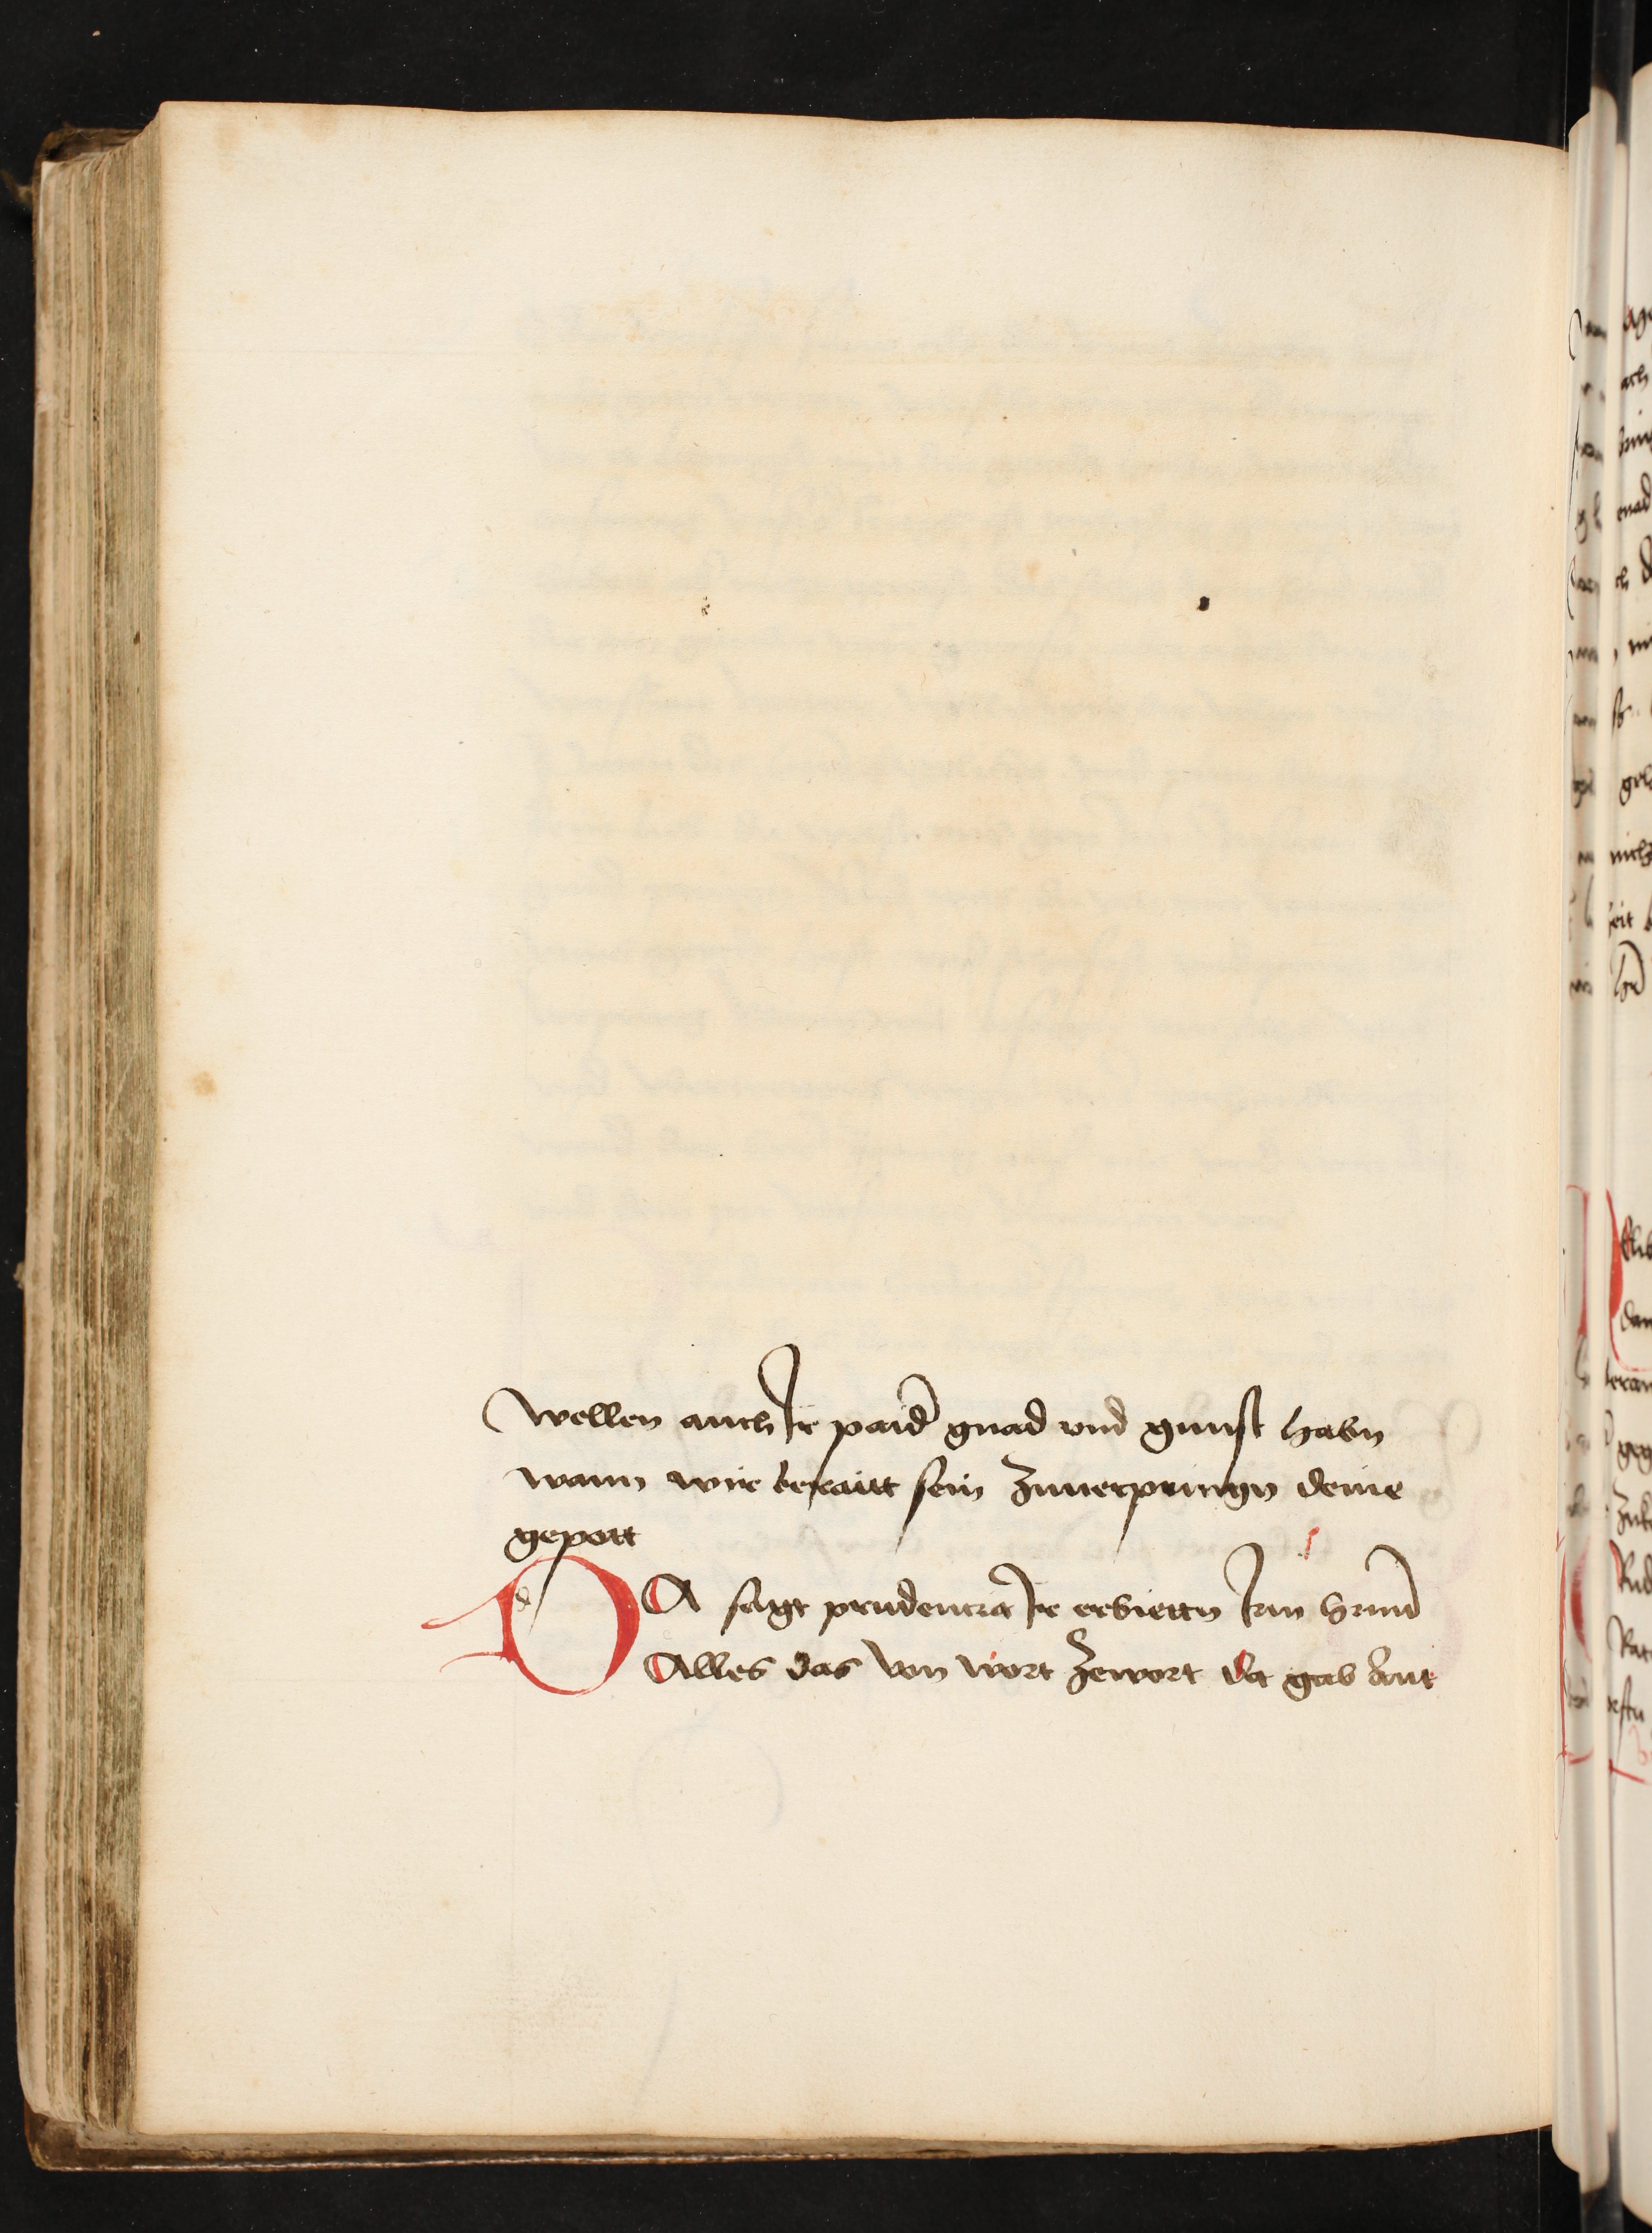 wellen auch Ir paid gnad vnd gunst habn
wann wir beraitt sein zuuerpringn deine
gepott
DA sagt prudencia Ir erbiettn Irm hrnn
Alles das von wort zewort da gab